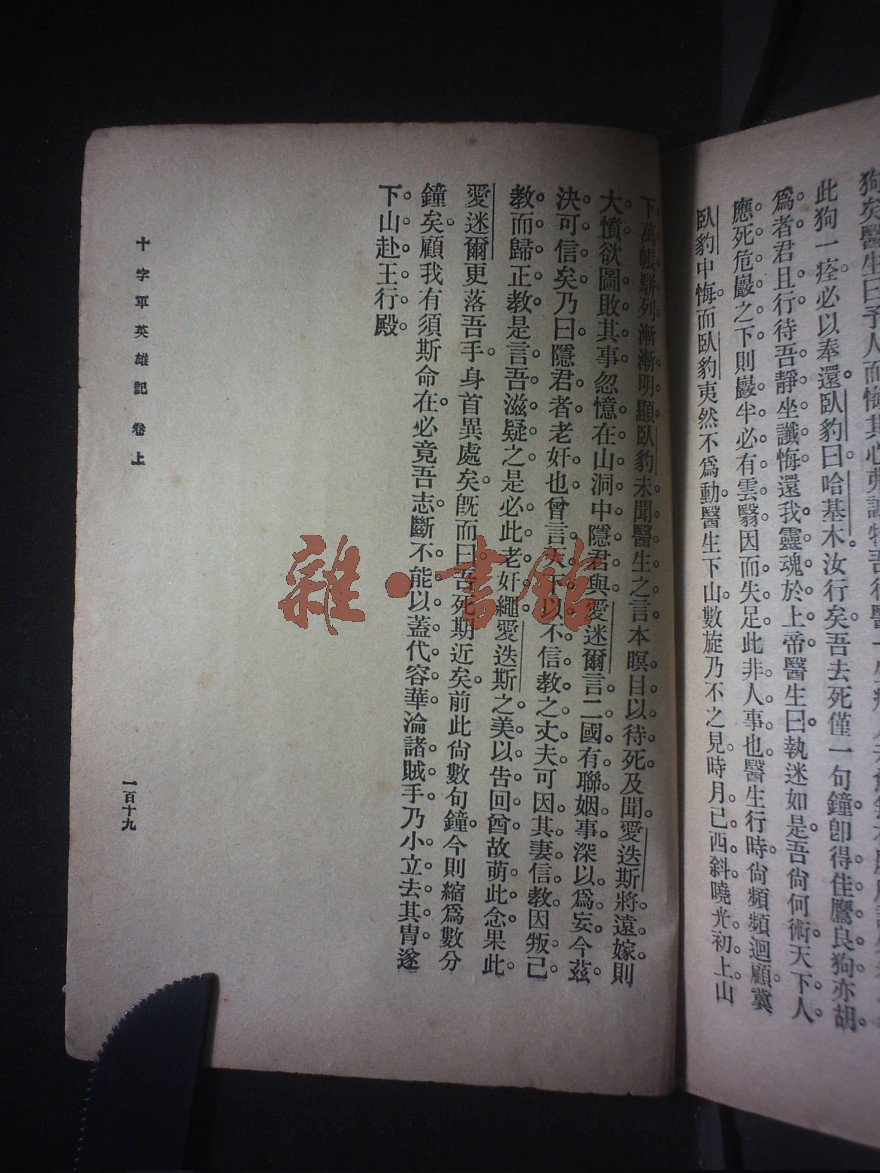 此狗一痊必以奉還。臥豹曰哈基木汝行矣。吾去死僅一句鐘卽得佳鷹良狗亦胡
爲者。君且行待吾靜坐讖悔還我靈魂於上帝醫生曰執迷如是吾尙何術天下人
應死危巖之下則巖半必有雲翳因而失足此非人事也醫生行時尙頻頻迴顧冀
臥豹中悔而臥豹夷然不爲動醫生下山數旋乃不之見時月已西斜曉光初上山
下萬帳駢列漸漸明顯臥豹未聞醫生之言本暝目以待死及聞愛迭斯將遠嫁則
大憤欲圖敗其事忽憶在山洞中隱君與愛迷爾言二國有聯姻事深以爲妄今茲
決可信矣乃曰隱君者老奸也曾言天下以不信教之丈夫可因其妻信教因叛己
教而歸正教是言吾滋疑之是必此老奸繩愛迭斯之美以告回酋故萌此念果此
愛迷爾更落吾手身首異處矣。旣而曰吾死期近矣前此尙數句鐘今則縮爲數分
鐘矣顧我有須斯命在必竟吾志斷不能以蓋代容華淪諸賊手乃小立去其胄遂
下山赴王行殿。
十字軍英雄記 卷上
一百十九
雜·書館